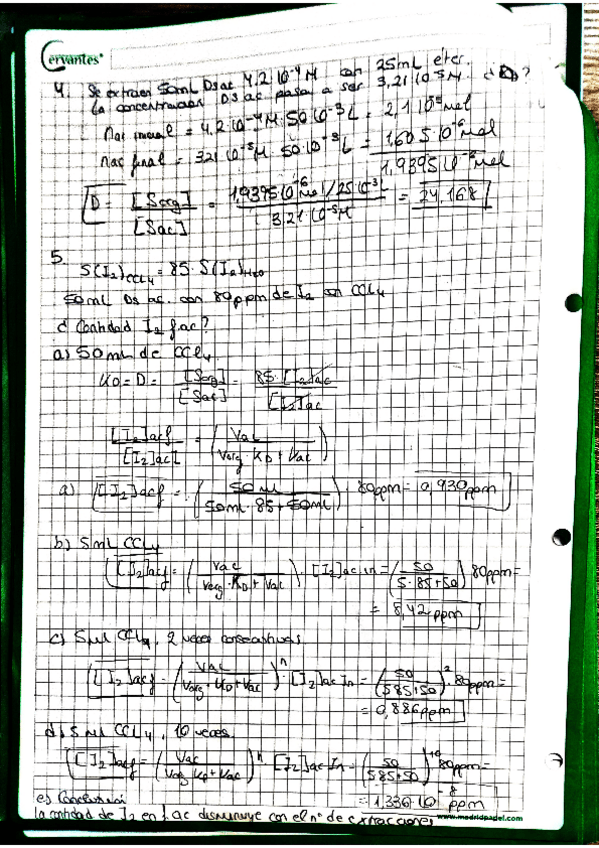 Cervantes
4. Se extraen 50mL Ds ac 4,2·10⁻⁴ M con 25mL éter.
La concentración Ds ac pasa a ser 3,21·10⁻⁵ M. ¿D?
nac inicial = 4,2·10⁻⁴ M · 50·10⁻³ L = 2,1·10⁻⁵ mol
nac final = 3,21·10⁻⁵ M · 50·10⁻³ L = 1,605·10⁻⁶ mol
1,9395·10⁻⁶ mol
D = [Sorg]/[Sac] = (1,9395·10⁻⁶ mol/25·10⁻³ L)/(3,21·10⁻⁵ M) = 24,168
5.
S(I₂)CCl₄ = 85 · S(I₂)H₂O
50mL Ds ac. con 80ppm de I₂ con CCl₄
¿Cantidad I₂ f ac?
a) 50mL de CCl₄
KD = D = [Sorg]/[Sac] = 85·[I₂]ac/[I₂]ac
[I₂]acf/[I₂]acI = (Vac/(Vorg·KD + Vac))
a) [I₂]acf = (50mL/(50mL·85+50mL)) · 80ppm = 0,930ppm
b) 5mL CCl₄
[I₂]acf = (Vac/(Vorg·KD + Vac)) · [I₂]ac in = (50/(5·85+50)) 80ppm =
= 8,42 ppm
c) 5mL CCl₄, 2 veces consecutivas
[I₂]acf = (Vac/(Vorg·KD+Vac))ⁿ · [I₂]ac In = (50/(5·85+50))² · 80ppm =
= 0,886ppm
d) 5mL CCl₄, 10 veces
[I₂]acf = (Vac/(Vorg KD + Vac))ⁿ [I₂]ac In = (50/(5·85+50))¹⁰ 80ppm =
= 1,336·10⁻⁸ ppm
e) Conclusión
La cantidad de I₂ en f. ac disminuye con el nº de extracciones
www.madridpapel.com